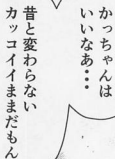 かっちゃんは
いいなあ・・・
昔と変わらない
カッコイイままだもん